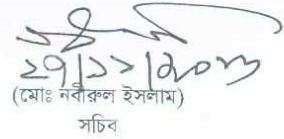 ২৭|১১|২০২৩
(মোঃ নবীরুল ইসলাম)
সচিব